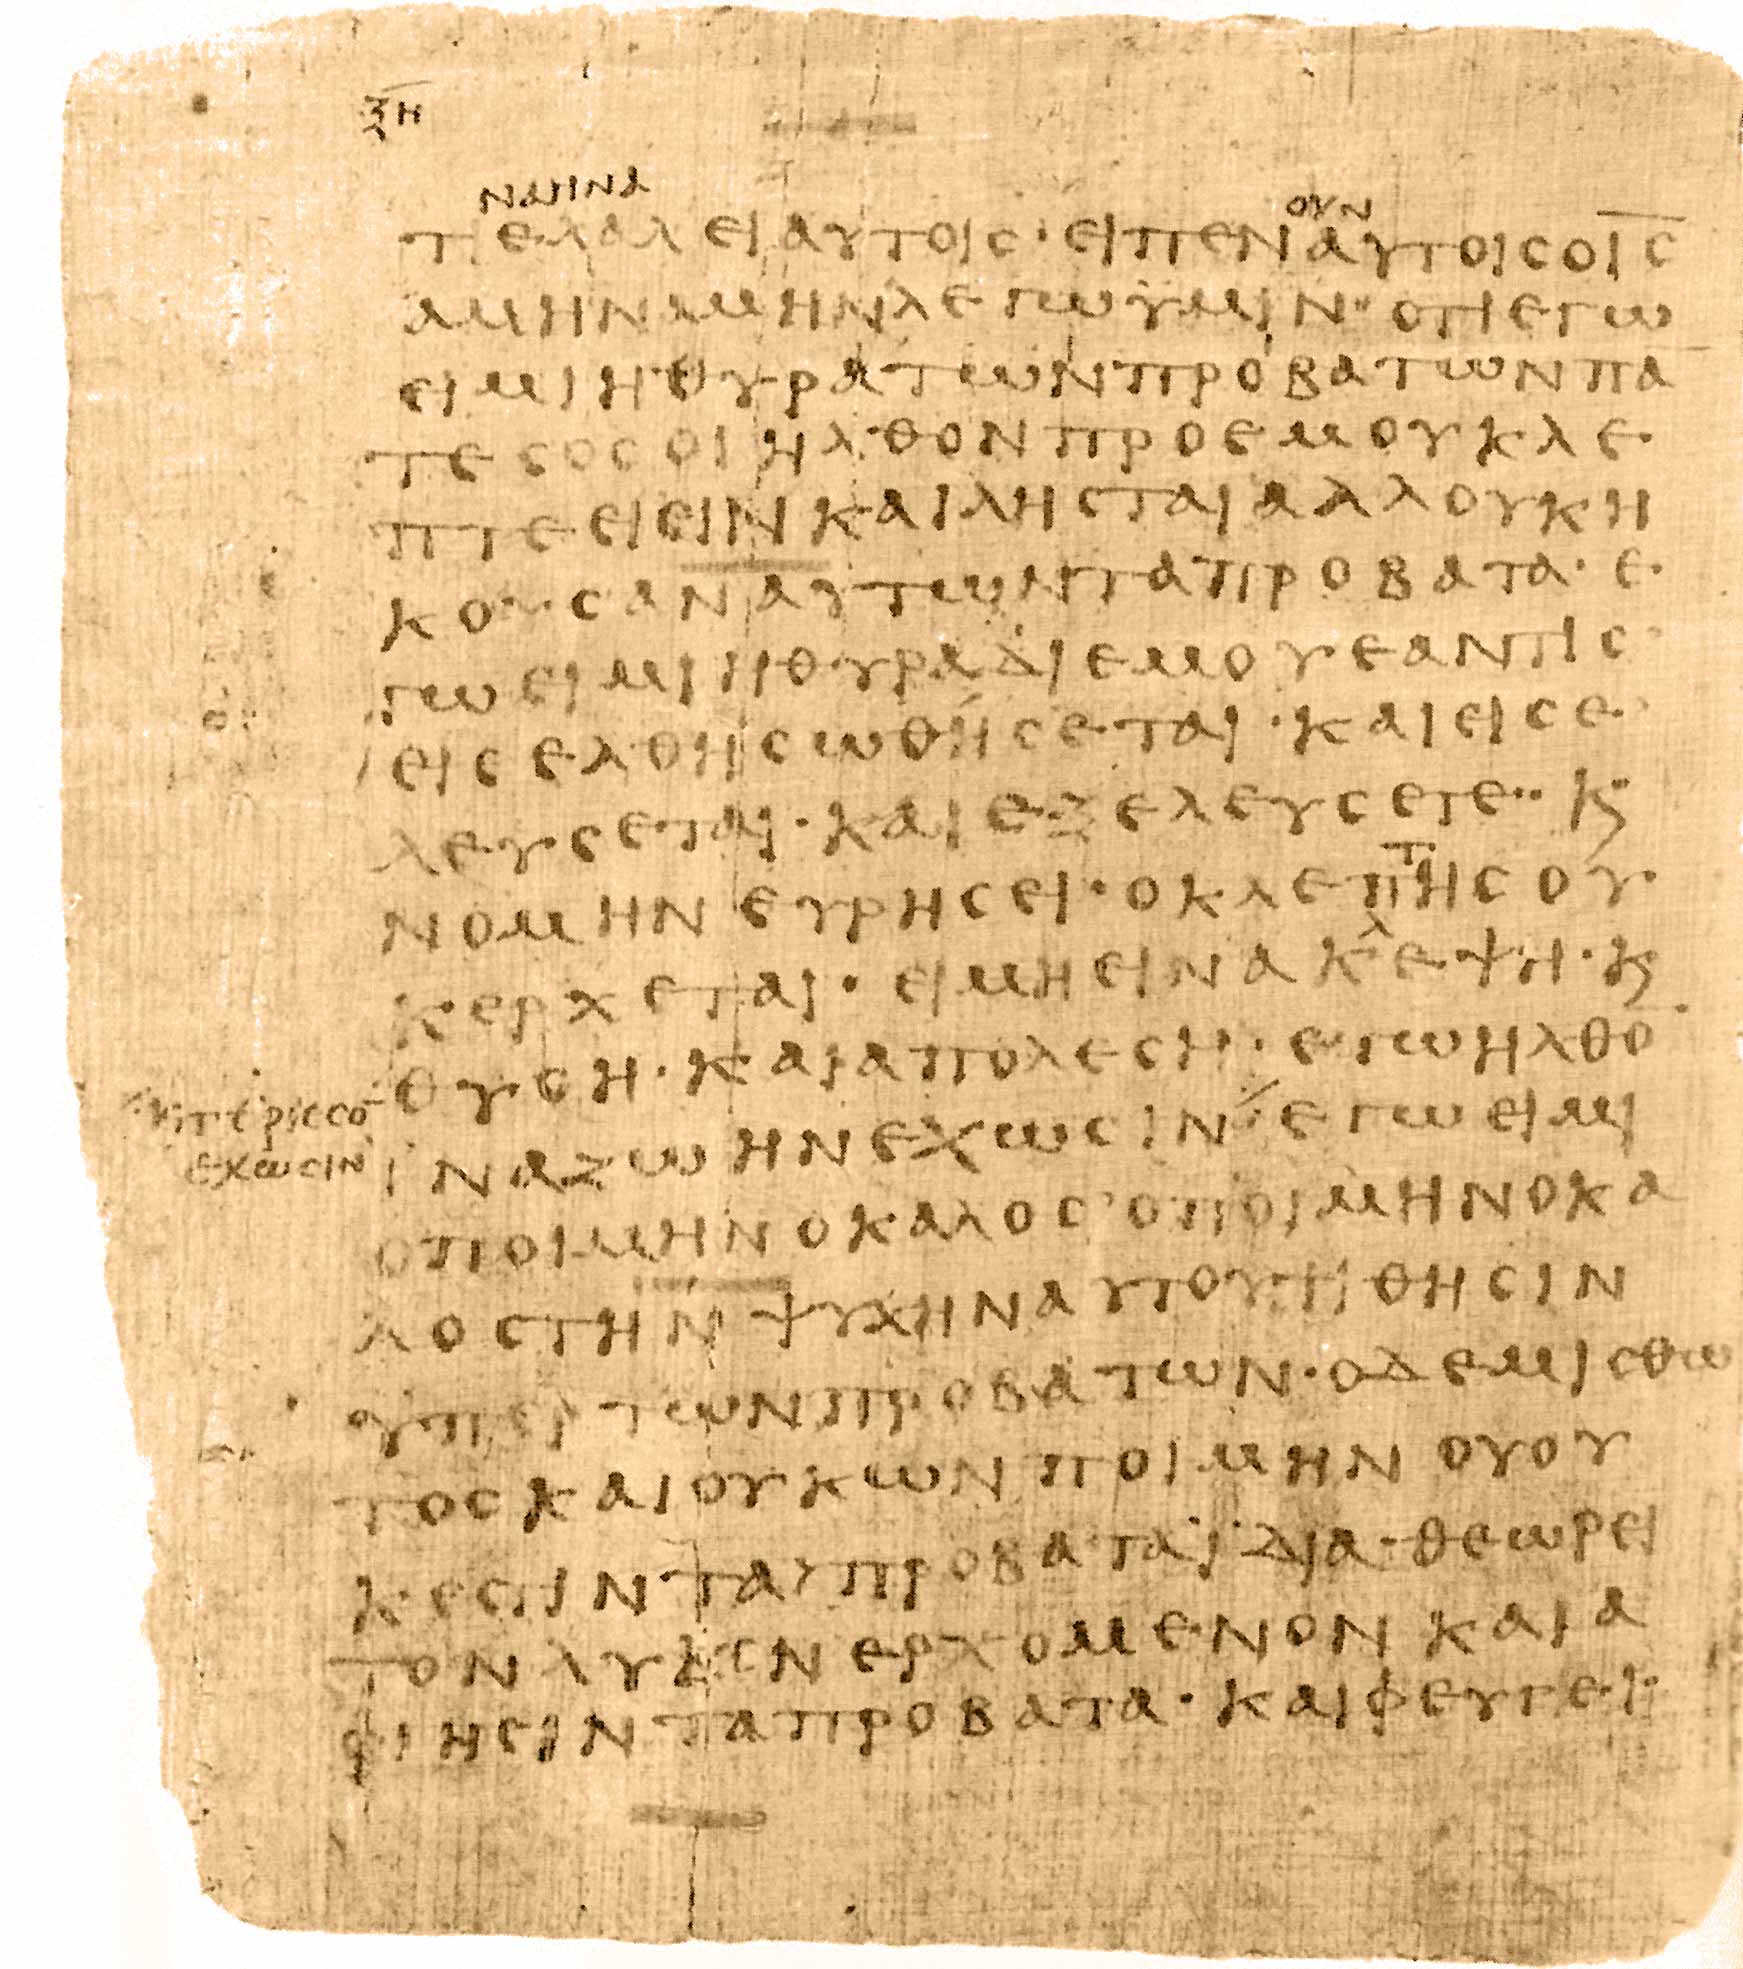 ξη
ναηινα
τελαλειαυτοις·ειπεν ουν αυτοισοις
αμηναμηνλεγωϋμιν·οτιεγω
ειμιηθυρατωνπροβατωνπα
τεςοσοιηλθονπροεμουκλε
πτεεισινκαιλησταιαλλουκη
κουσαναυτωνταπροβατα·ε
γωειμιηθυραδιεμουεαντις
εισελθησωθησεται·καιεισε
λευσεται·καιεξελευσετε··κς
νομηνευρησει·οκλεπτησου
κερχεται·ειμηειινακλεψη·κς
θυση·καιαπολεση·εγωηλθο
ϊναζωηνεχωσιν⸍εγωειμι
κςπερισσο
εχωσιν
οποιμηνοκαλος·οποιμηνοκα
λοςτηνψυχηναυτουτιθησιν
ϋπερτωνπροβατων·οδεμισθω
τοςκαιουκωνποιμηνουου
κεστιν·ταπροβαταϊδια·θεωρει
τονλυκονερχομενονκαια
φιησινταπροβατα·καιφευγει·